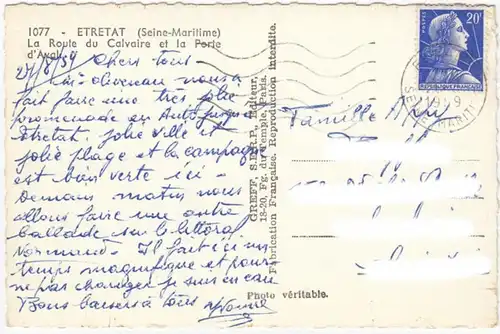 1077 - ETRETAT (Seine-Maritime)
La Route du Calvaire et la Porte
d'Aval
27/8/59 Chers tous
nous a
fait faire une très jolie
promenade en Auto jusqu'à
Etretat. Jolie ville et
jolie plage et la campagne
est bien verte ici -
Demain matin nous
allons faire une autre
ballade sur le littoral
Normand. Il fait ici un
temps magnifique et pour
ne pas changer je suis en eau
Bons baisers à tous Yvonne
GREFF, S.E.R.P., Editeur,
18-20, Fg. du Temple, Paris.
Fabrication Française. Reproduction Interdite.
Photo véritable.
POSTES
20F
REPUBLIQUE FRANÇAISE
Famille